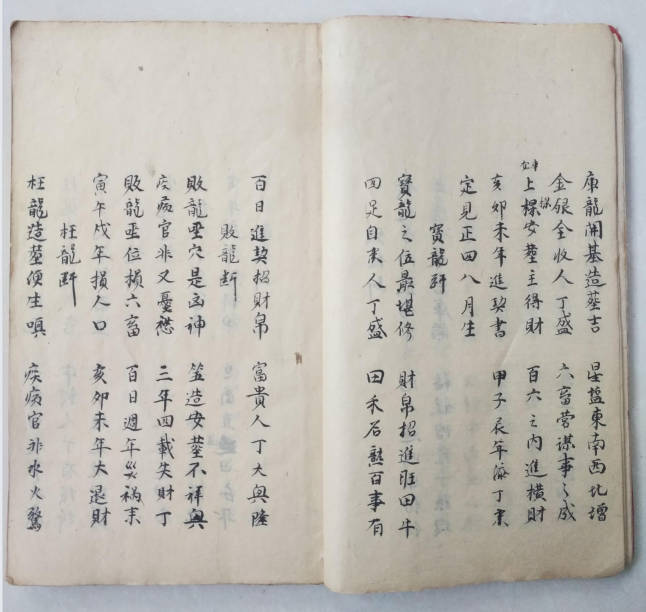 庫龍開基造塟吉　星盐東南西北增
金銀全收人丁盛　六畜营谋事之成
上樑安塟主得財　百六之内進横財
亥卯未年進契書　甲子辰年添丁来
定見正四八月生
寳龍断
寳龍之位最堪修　財帛招進旺田牛
四足自来人丁盛　田禾百事有
百日進契招財帛　富貴人丁大興隆
敗龍断
敗龍垩穴是凶神　笠造安塟不祥興
疾病官非又憂愁　三年四載失財丁
敗龍垩位损六畜　百日週年災祸来
寅午戌年損人口　亥卯未年大退財
枉龍断
枉龍造塟便生嗔　疾病官非水火驚